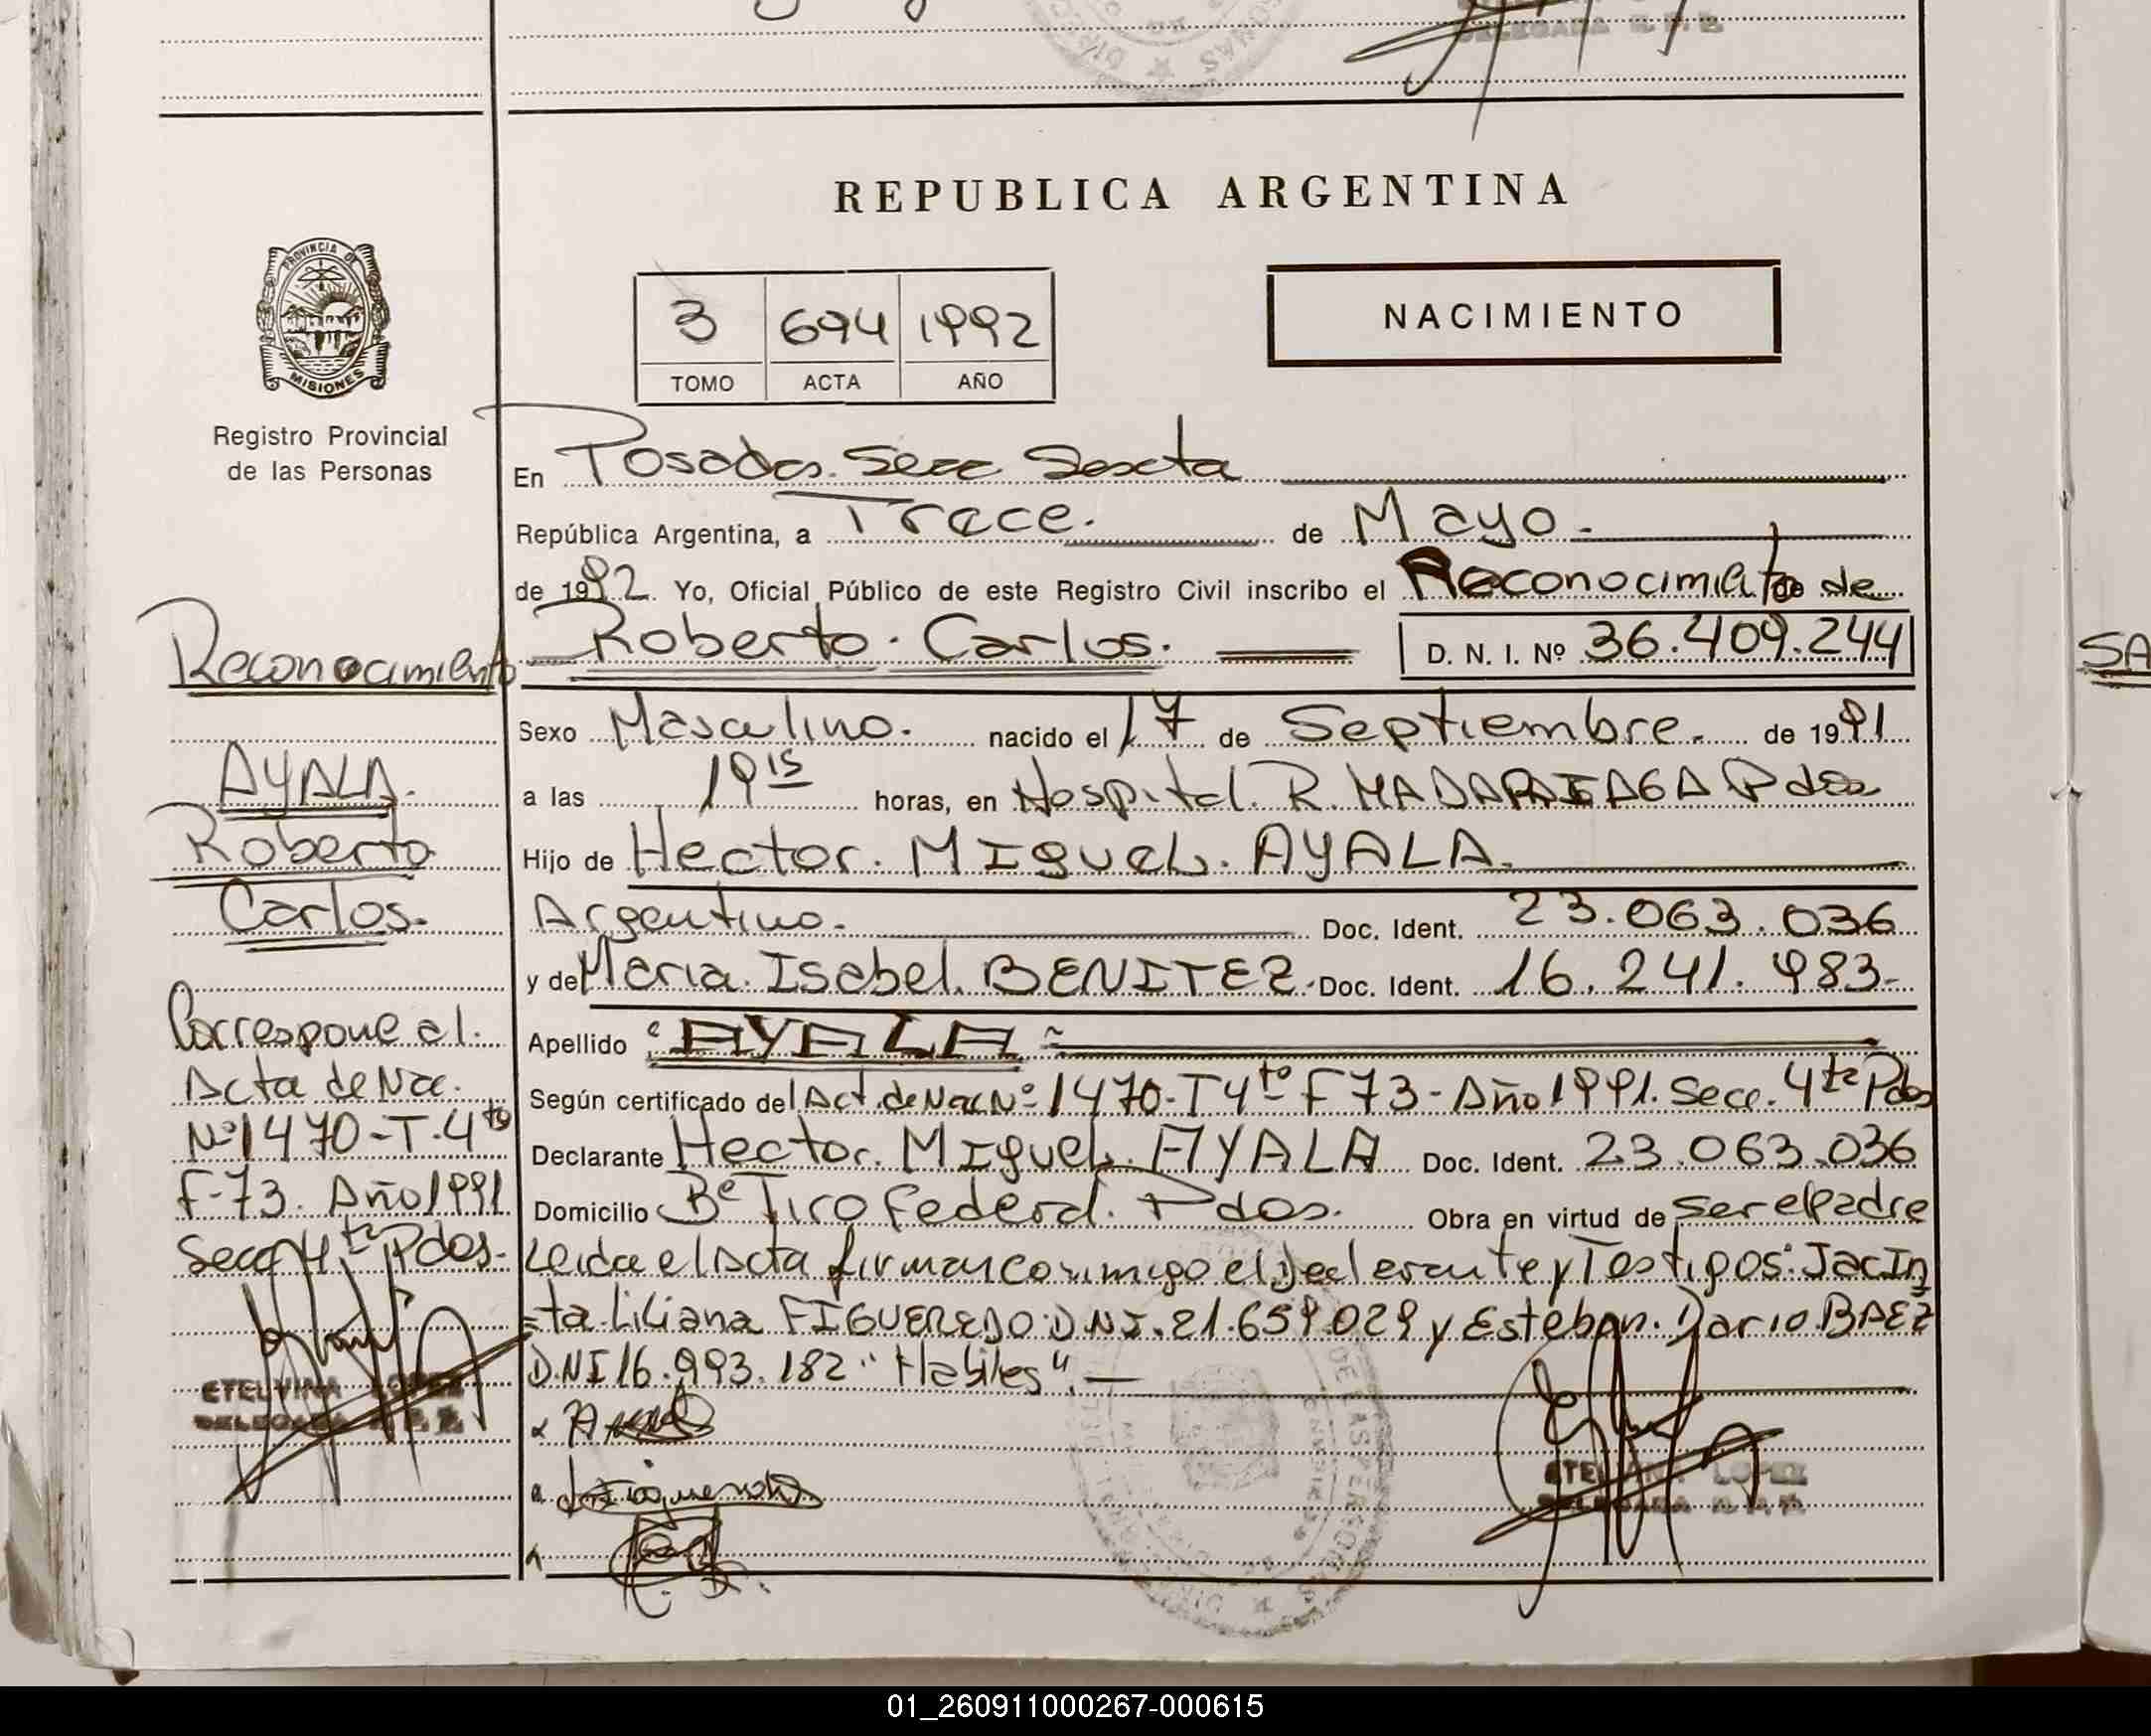 REPUBLICA ARGENTINA
PROVINCIA DE
MISIONES
Registro Provincial
de las Personas
3 694 1992
TOMO ACTA AÑO
NACIMIENTO
En Posadas. Secc Sexta
República Argentina, a Trece. de Mayo.
de 1992 Yo, Oficial Público de este Registro Civil inscribo el Reconocimiento de
Roberto. Carlos. D. N. I. Nº 36.409.244
Sexo Masculino. nacido el 17 de Septiembre. de 1991
a las 19 15 horas, en Hospital. R. MADARIAGA Pdas
Hijo de Hector. MIguel. AYALA.
Argentino. Doc. Ident. 23.063.036
y de Maria. Isabel. BENITEZ. Doc. Ident. 16.241.983-
Apellido "AYALA"
Según certificado del Act. de Nac Nº 1470-T4to F73-Año 1991. Secc. 4ta Pdas
Declarante Hector. MIguel. AYALA Doc. Ident. 23.063.036
Domicilio Bº Tiro Federal. Pdas. Obra en virtud de ser el padre
Leida el Acta firman conmigo el Declarante y Testigos: JacIn
=ta Liliana FIGUEREDO D.N.I. 21.659.029 y Esteban. Dario. BAEZ
D.N.I 16.993.182 "Habiles".
ETELVINA LOPEZ
DELEGADA R. P. P.
Reconocimiento
AYALA.
Roberto
Carlos.
Correspone al.
Acta de Nac.
Nº 1470-T.4to
F-73. Año 1991
Secc 4ta Pdas.
ETELVINA LOPEZ
DELEGADA
DELEGADA R. P. P.
SA
01_260911000267-000615